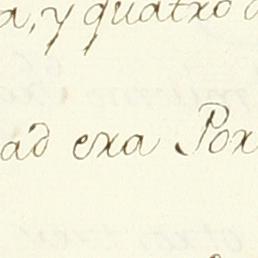 a, y quatro
ad era Por